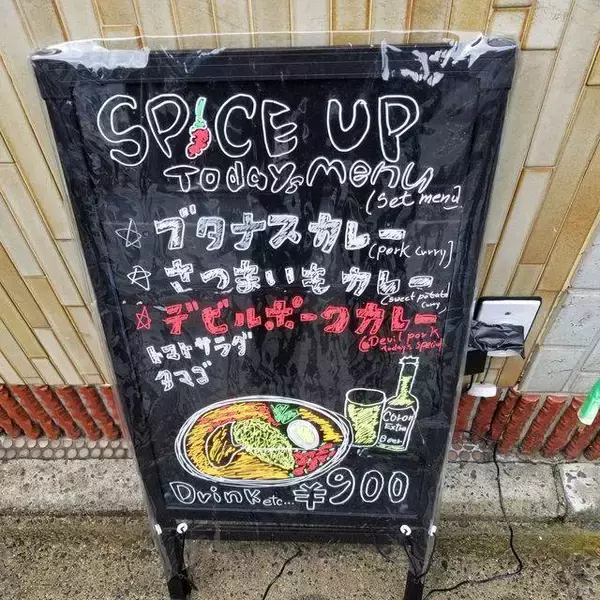 SPICE UP
Todays Menu
(Set menu)
☆ ブタナスカレー
(Pork curry)
☆ さつまいもカレー
(sweet potato curry)
☆ デビルポークカレー
(Devil pork Today's special)
トマトサラダ
タマゴ
Coron
Extra
Beer
Drink etc... ¥900